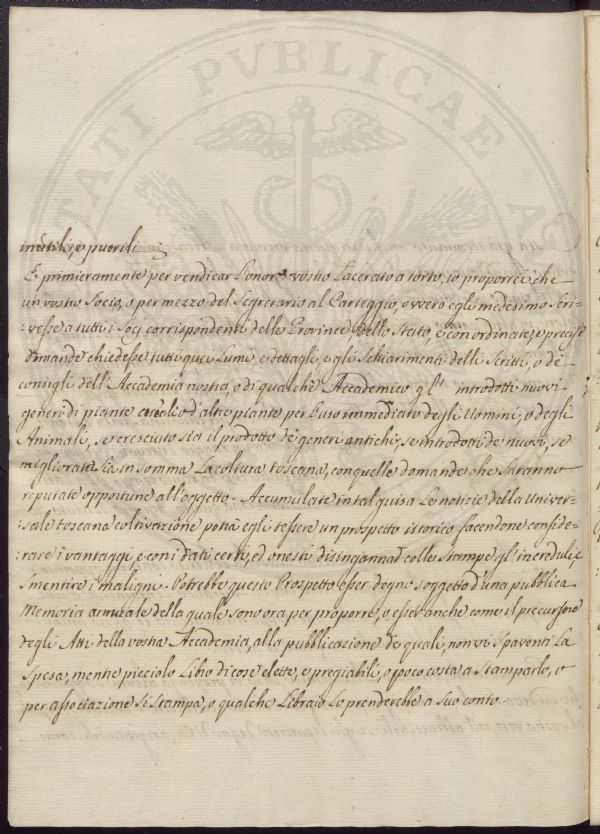 PROSPERITATI PVBLICAE AV
inutili, e puerili
E primieramente per vendicar l'onor vostro lacerato a torto, io proporrei che
un vostro Socio, o per mezzo del Segretario al Carteggio, ovvero egli medesimo scri-
:vesse a tutti i Socj corrispondenti delle Province, dello Stato, e con ordinate, e precise
domande chiedesse tutti quei Lumi, e dettagli, e gli Schiarimenti delli Scritti, o de
consigli dell'Accademia nostra, o di qualche Accademico introdotti nuovi
generi di piante cereali o d'altre piante per l'uso immediato degli Uomini, o degli
Animali, se cresciuto sia il prodotto de generi antichi, se introdotti de nuovi, se
migliorata sia in somma la coltura toscana, con quelle domande che saranno
reputate opportune all'oggetto. Accumulate in tal guisa le notizie della Univer-
:sale toscana coltivazione potrà egli tessere un prospetto istorico facendone conside-
:rare i vantaggi, e con i dati certi, ed onesti disingannar colle stampe gl'increduli, e
smentire i maligni. Potrebbe questo Prospetto esser degno soggetto d'una pubblica
Memoria annuale della quale sono ora per proporre, o esser anche come il precursore
degli Atti della vostra Accademia, alla pubblicazione de quali, non vi spaventi la
spesa, mentre picciolo Libro di cose elette, e pregiabili, o poco costa a stamparlo, o
per associazione si stampa, o qualche Libraio lo prenderebbe a suo conto.